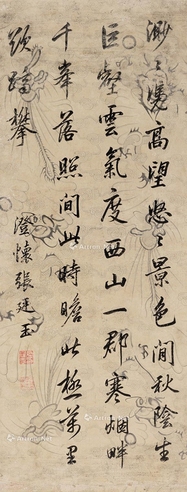 渺渺凭高望悠悠景色间秋阴生
巨壑云气度西山一郡寒烟畔
千峰落照间此时瞻此极万里
欲跻攀
澄怀张廷玉